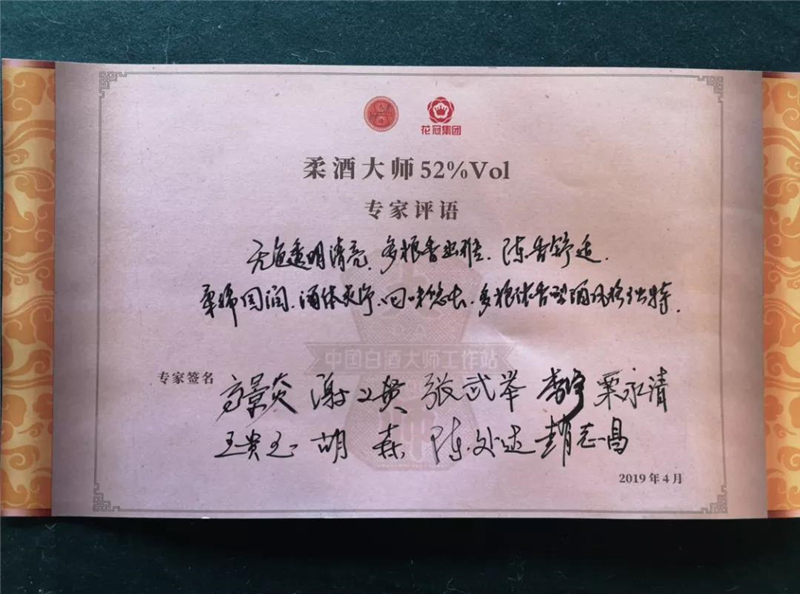 花冠集团
柔酒大师52%Vol
专家评语
无色透明清亮、多粮香幽雅、陈香舒适、
柔绵圆润、酒体爽净、回味悠长、多粮浓香型酒风格独特。
中国白酒大师工作站
专家签名 高景炎 谢义贵 张武举 李净 栗永清
王贵玉 胡森 陈处达 赵志昌
2019年4月